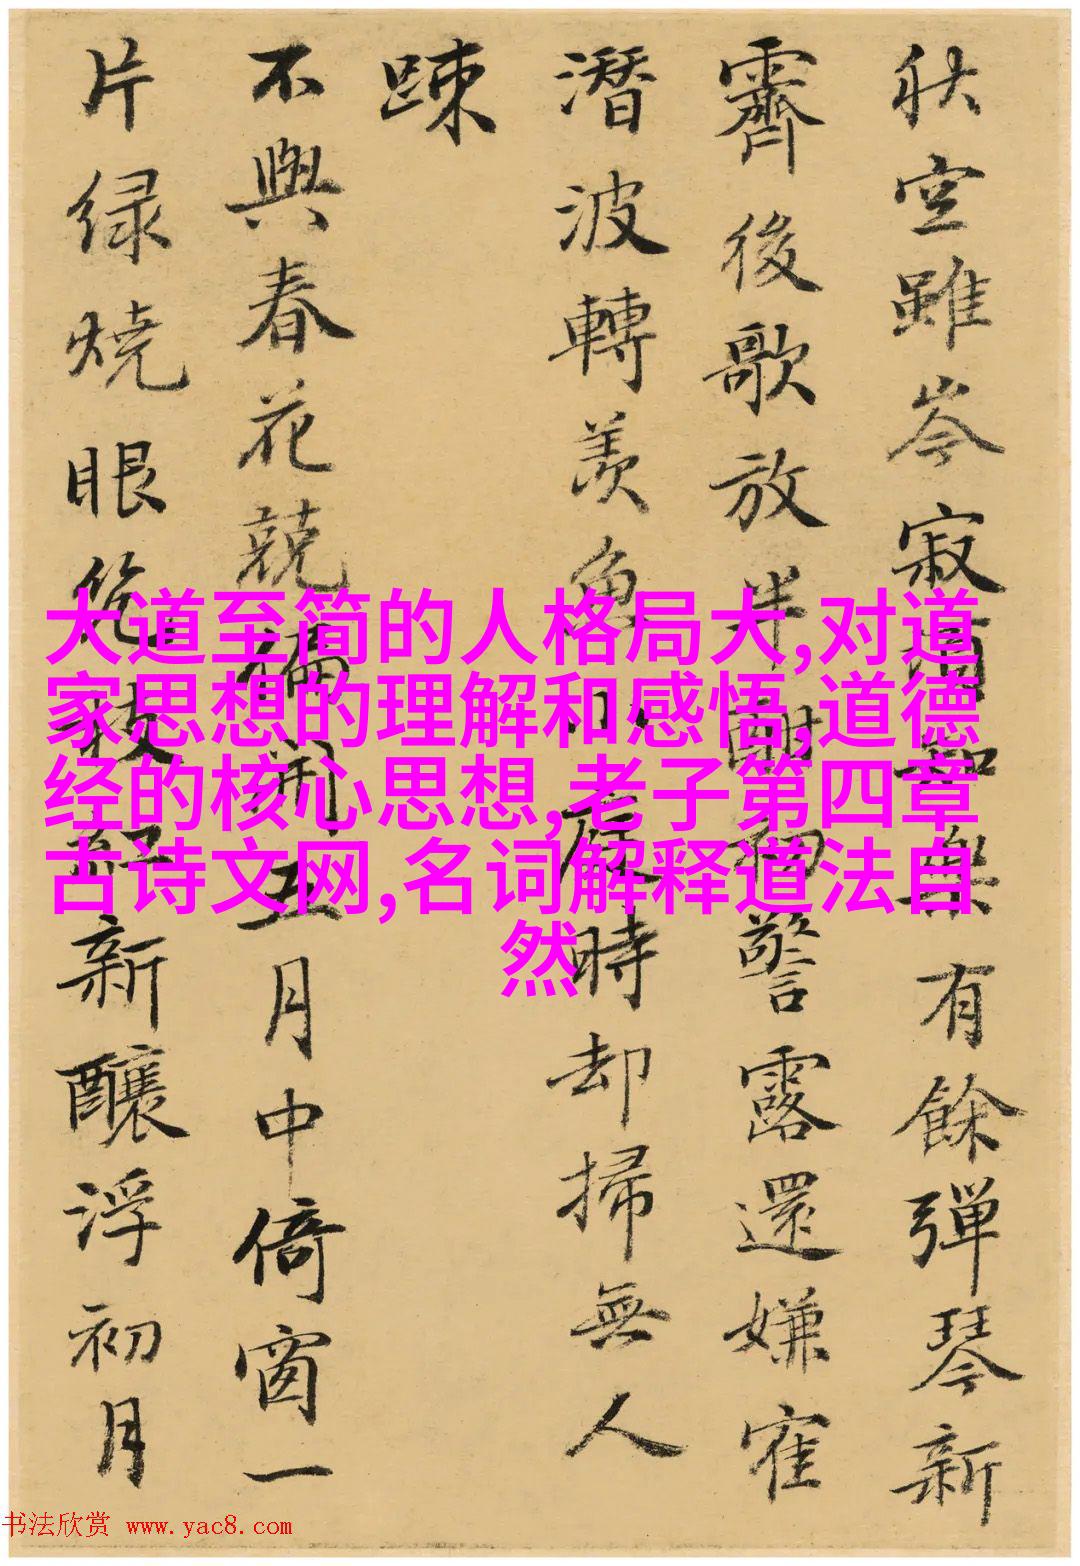 秋空雖岑寂知樂有餘彈琴新
霽後歌放半酣初警露還嫌寉
潛波轉羨魚時却掃無人
踈
不與春花競偏開五月中倚窗一
片緑燒眼幾枝紅新釀浮初月
大道至简的人格局大,对道
家思想的理解和感悟,道德
经的核心思想,老子第四章
古诗文网,名词解释道法自
然
书法欣赏 www.yac8.com